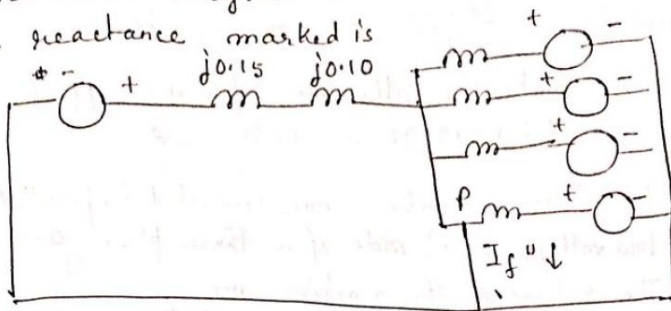 reactance marked is
j0.15 j0.10
* - +
+ -
+ -
+ -
P + -
I_f" ↓